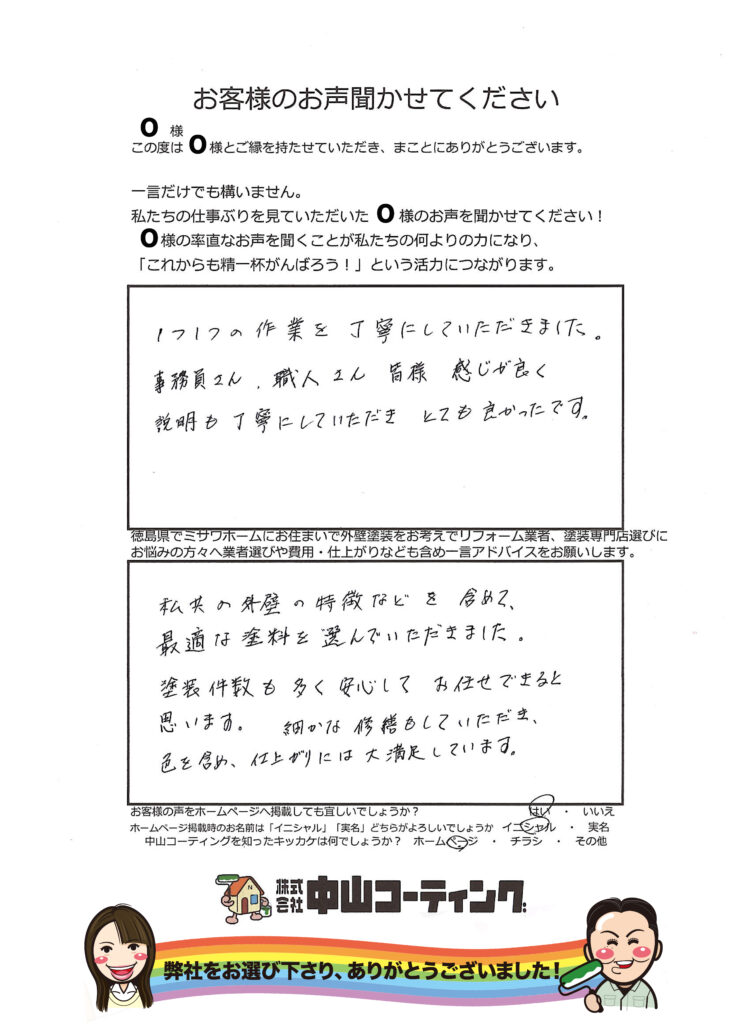 お客様のお声聞かせてください
O 様
この度は O 様とご縁を持たせていただき、まことにありがとうございます。
一言だけでも構いません。
私たちの仕事ぶりを見ていただいた O 様のお声を聞かせてください！
O 様の率直なお声を聞くことが私たちの何よりの力になり、
「これからも精一杯がんばろう！」という活力につながります。
1つ1つの作業を丁寧にしていただきました。
事務員さん、職人さん 皆様 感じが良く
説明も丁寧にしていただき とても良かったです。
徳島県でミサワホームにお住まいで外壁塗装をお考えでリフォーム業者、塗装専門店選びに
お悩みの方々へ業者選びや費用・仕上がりなども含め一言アドバイスをお願いします。
私共の外壁の特徴などを含めて、
最適な塗料を選んでいただきました。
塗装件数も多く安心してお任せできると
思います。 細かな修繕もしていただき、
色を含め、仕上がりには大満足しています。
お客様の声をホームページへ掲載しても宜しいでしょうか？ はい ・ いいえ
ホームページ掲載時のお名前は「イニシャル」「実名」どちらがよろしいでしょうか イニシャル ・ 実名
中山コーティングを知ったキッカケは何でしょうか？ ホームページ ・ チラシ ・ その他
N
株式会社 中山コーティング
弊社をお選び下さり、ありがとうございました！